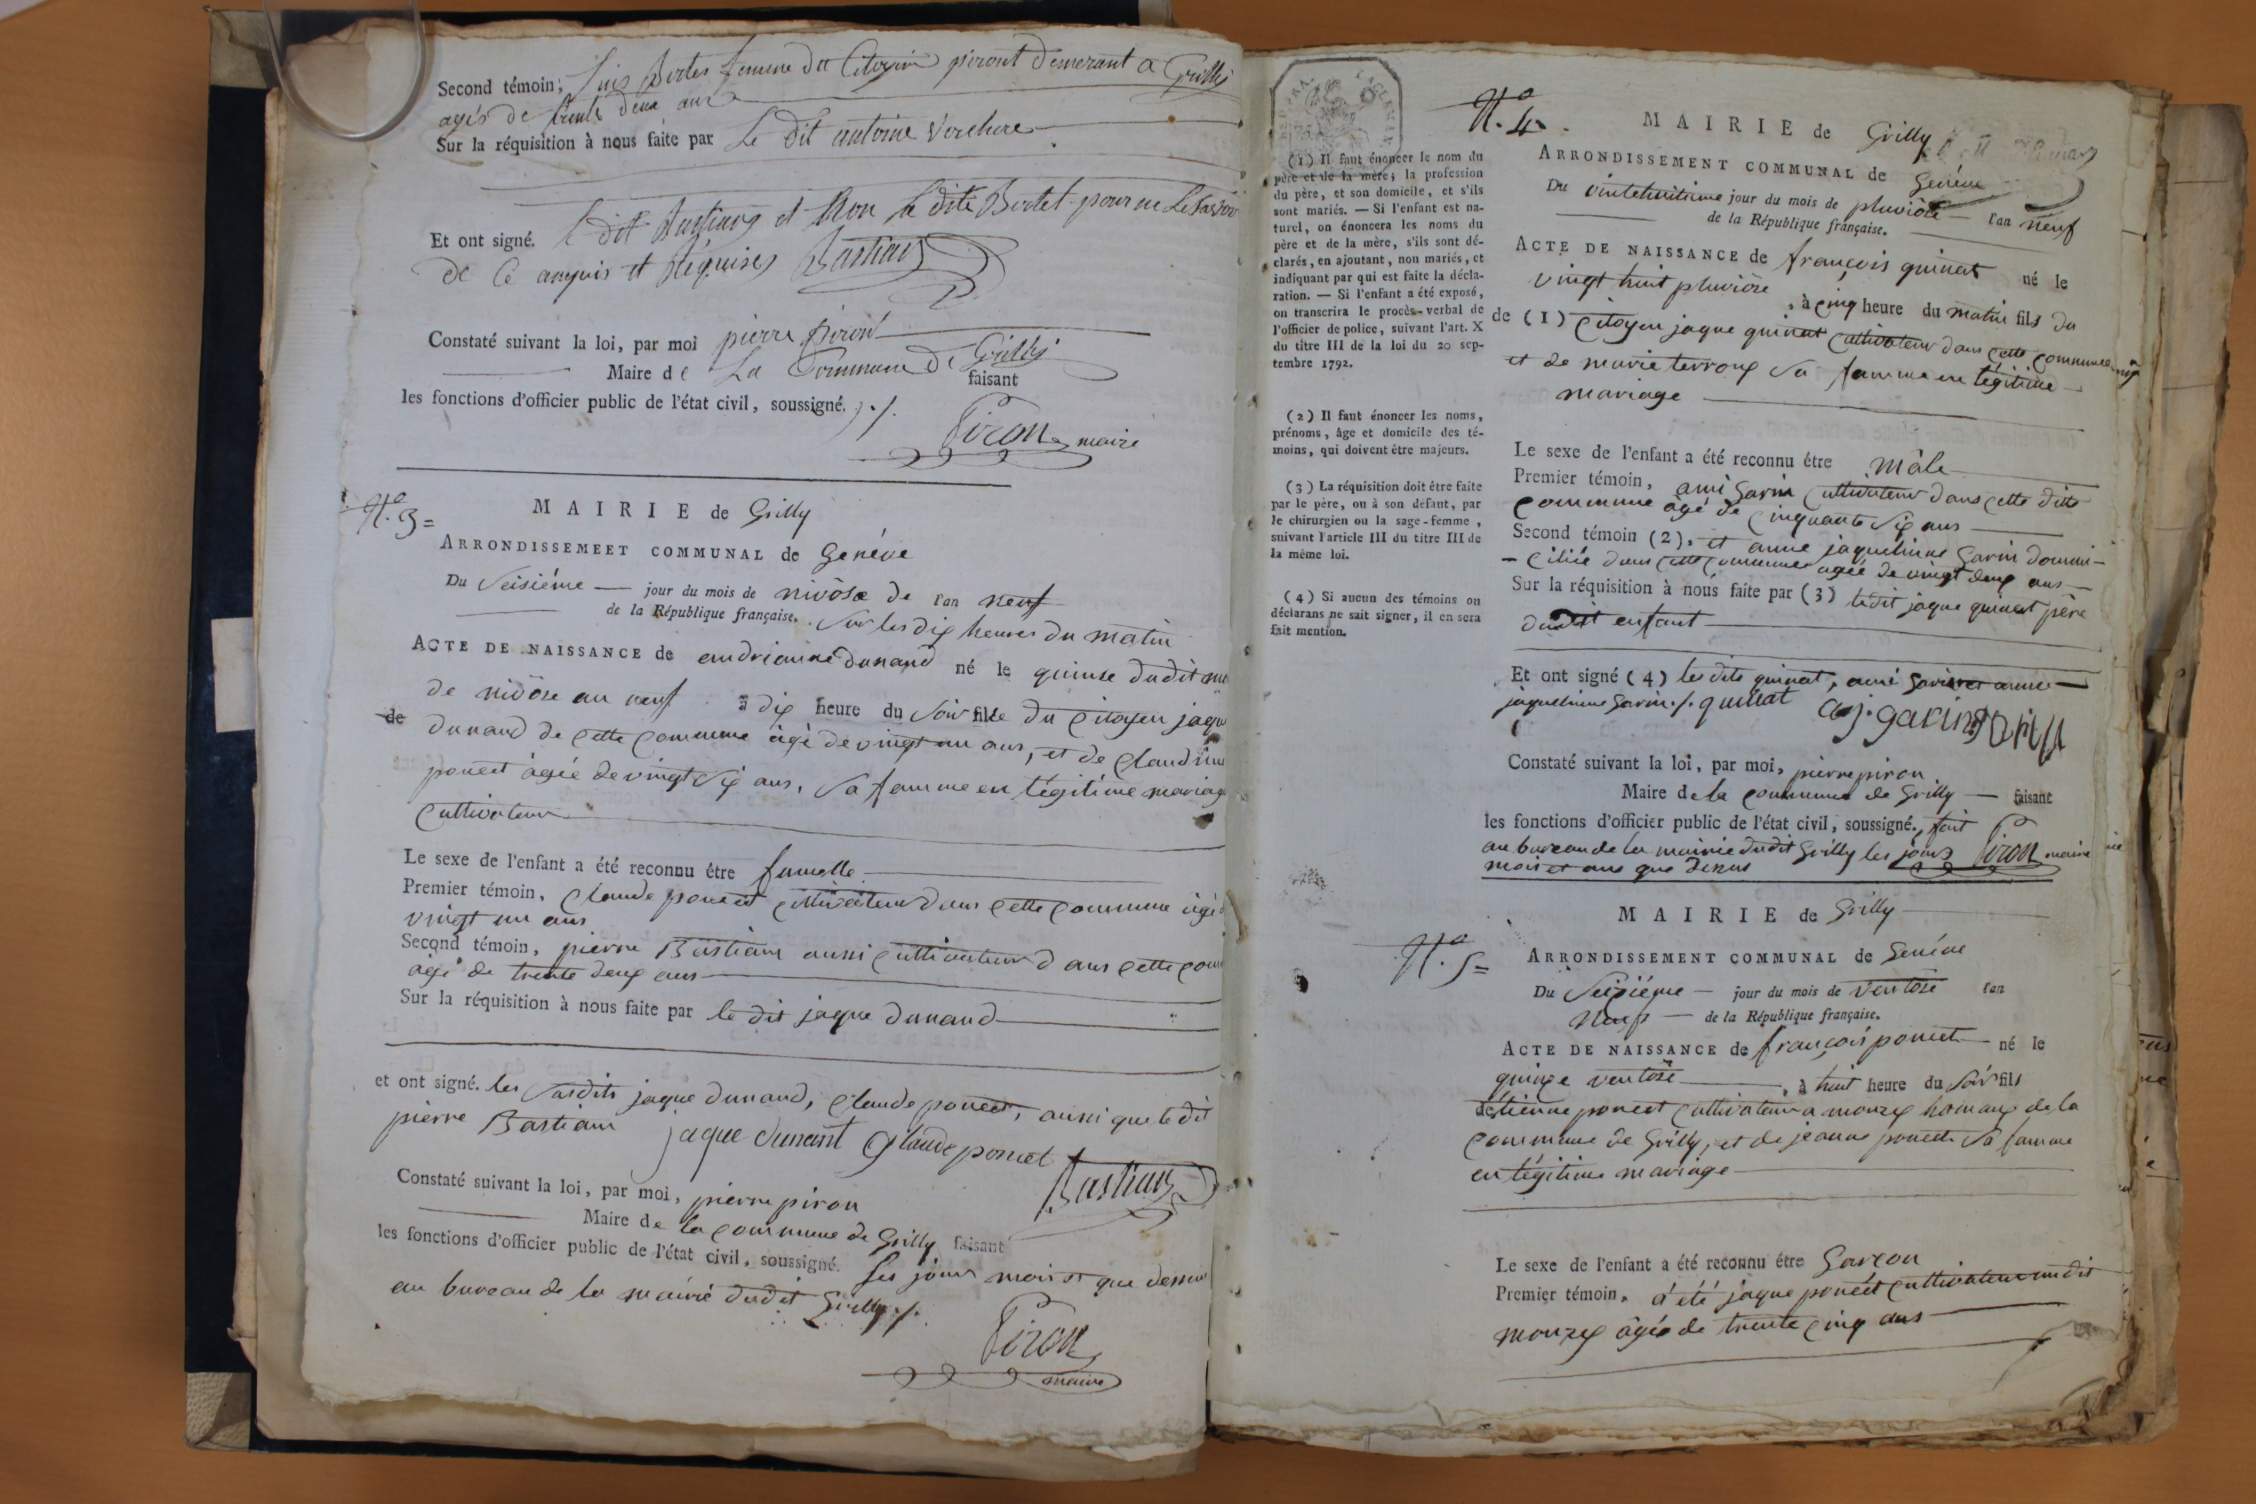 Second témoin, femme du Citoyen piront demerant a Grilli
agés de trente deux ans
Sur la réquisition à nous faite par Le dit antoine Verchere
Et ont signé. le dit Bastian et Non la dite Bertet pour ne Le savoir
de Ce anquis et Requises Bastian
Constaté suivant la loi, par moi pierre Piron
Maire de La Commune de Grilli faisant
les fonctions d'officier public de l'état civil, soussigné. ./.
Piron maire
N.o 3 =
MAIRIE de Grilly
ARRONDISSEMEET COMMUNAL de Genéve
Du Seisiéme jour du mois de nivôse de l'an neuf
de la République française. Sur les dix heures du matin
ACTE DE NAISSANCE de andrianne Dunand né le quinse dudit
de nivôse an neuf à dix heure du Soir fille du Citoyen jaque
de Dunand de cette Commune âgé de vingt un ans, et de Claudine
poncet âgée de vingt Six ans, Sa famme en légitime mariage
Cultivateur
Le sexe de l'enfant a été reconnu être fumelle
Premier témoin, Claude poncet Cultivateur dans cette commune âgé
vingt un ans
Second témoin, pierre Bastian aussi Cultivateur dans cette
âgé de trente deux ans
Sur la réquisition à nous faite par le dit jaque dunand
et ont signé. les Susdits jaque dunand, Claude poncet, aussi que le dit
pierre Bastian jaque dunant Claude poncet
Bastian
Constaté suivant la loi, par moi, pierre piron
Maire de la commune de Grilly faisant
les fonctions d'officier public de l'état civil, soussigné. Les jour mois et que dessus
au bureau de la mairie dudit Grilly ./.
Piron
maire
N.o 4
MAIRIE de Grilly
ARRONDISSEMENT COMMUNAL de Genéve
Du vintehuitiéme jour du mois de pluviôse l'an neuf
de la République française.
ACTE DE NAISSANCE de françois quinat né le
vingt huit pluviôse, à cinq heure du matin fils du
de (1) Citoyen jaque quinat Cultivateur dans cette commune
et de marie terroux Sa famme en légitime
mariage
Le sexe de l'enfant a été reconnu être mâle
Premier témoin, ami Garin Cultivateur dans cette dite
commune âgé de cinquante Six ans
Second témoin (2), et anne jaquelinne Garin domi-
-ciliée dans cette commune agée de vingt deux ans
Sur la réquisition à nous faite par (3) ledit jaque quinat père
dudit enfant
Et ont signé (4) les dits quinat, ami Garin et anne
jaquelinne Garin ./. quinat a j. garin
Constaté suivant la loi, par moi, pierre piron
Maire de la commune de Grilly faisant
les fonctions d'officier public de l'état civil, soussigné. fait
au bureau de la mairie dudit Grilly les jours Piron maire
mois et ans que dessus
(1) Il faut énoncer le nom du
père et de la mère; la profession
du père, et son domicile, et s'ils
sont mariés. — Si l'enfant est na-
turel, on énoncera les noms du
père et de la mère, s'ils sont dé-
clarés, en ajoutant, non mariés, et
indiquant par qui est faite la décla-
ration. — Si l'enfant a été exposé,
on transcrira le procès-verbal de
l'officier de police, suivant l'art. X
du titre III de la loi du 20 sep-
tembre 1792.
(2) Il faut énoncer les noms,
prénoms, âge et domicile des té-
moins, qui doivent être majeurs.
(3) La réquisition doit être faite
par le père, ou à son défaut, par
le chirurgien ou la sage-femme,
suivant l'article III du titre III de
la même loi.
(4) Si aucun des témoins ou
déclarans ne sait signer, il en sera
fait mention.
N.o 5 =
MAIRIE de Grilly
ARRONDISSEMENT COMMUNAL de Genéve
Du Seiziéme jour du mois de ventôse l'an
Neuf de la République française.
ACTE DE NAISSANCE de françois poncet né le
quinze ventôse, à huit heure du Soir fils
de étienne poncet Cultivateur a mourex hameaux de la
Commune de Grilly, et de jeanne poncet Sa famme
en légitime mariage
Le sexe de l'enfant a été reconnu être Garcon
Premier témoin, a été jaque poncet Cultivateur audit
mourex âgée de trente cinq ans